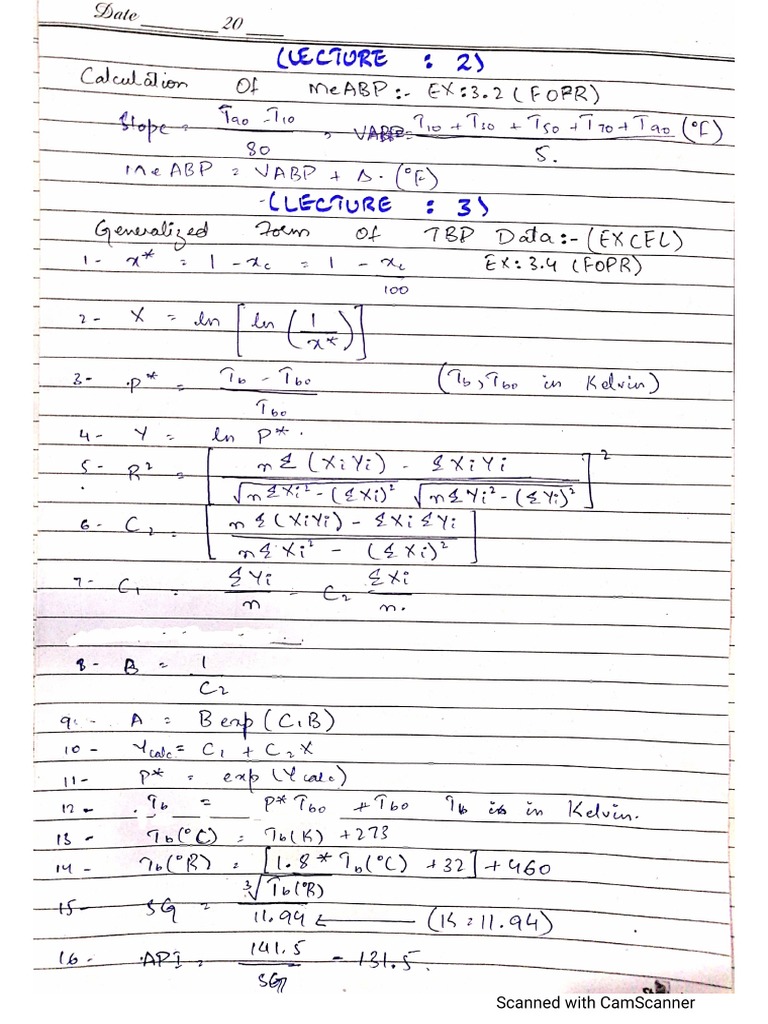 Date ______ 20 ___
(LECTURE : 2)
Calculation Of MeABP:- EX:3.2 (FOPR)
Slope = T90 - T10 / 80 , VABP = T10 + T30 + T50 + T70 + T90 / 5. (°F)
MeABP = VABP + Δ. (°F)
(LECTURE : 3)
Generalized Form Of TBP Data:- (EXCEL)
1- x* = 1 - xc = 1 - xc / 100 EX: 3.4 (FOPR)
2- X = ln [ln (1 / x*)]
3- P* = Tb - Tbo / Tbo (Tb, Tbo in Kelvin)
4- Y = ln P*.
5- R² = [nΣ(XiYi) - ΣXiYi / √nΣXi² - (ΣXi)² √nΣYi² - (ΣYi)²]²
6- C2 = [nΣ(XiYi) - ΣXiΣYi / nΣXi² - (ΣXi)²]
7- C1 = ΣYi / n - C2 ΣXi / n.
8- B = 1 / C2
9- A = B exp(C1B)
10- Ycalc = C1 + C2X
11- P* = exp(Ycalc)
12- Tb = P* Tbo + Tbo Tb is in Kelvin.
13- Tb(°C) = Tb(K) + 273
14- Tb(°R) = [1.8 * Tb(°C) + 32] + 460
15- SG = ∛Tb(°R) / 11.94 ← (K = 11.94)
16- API = 141.5 / SG - 131.5.
Scanned with CamScanner